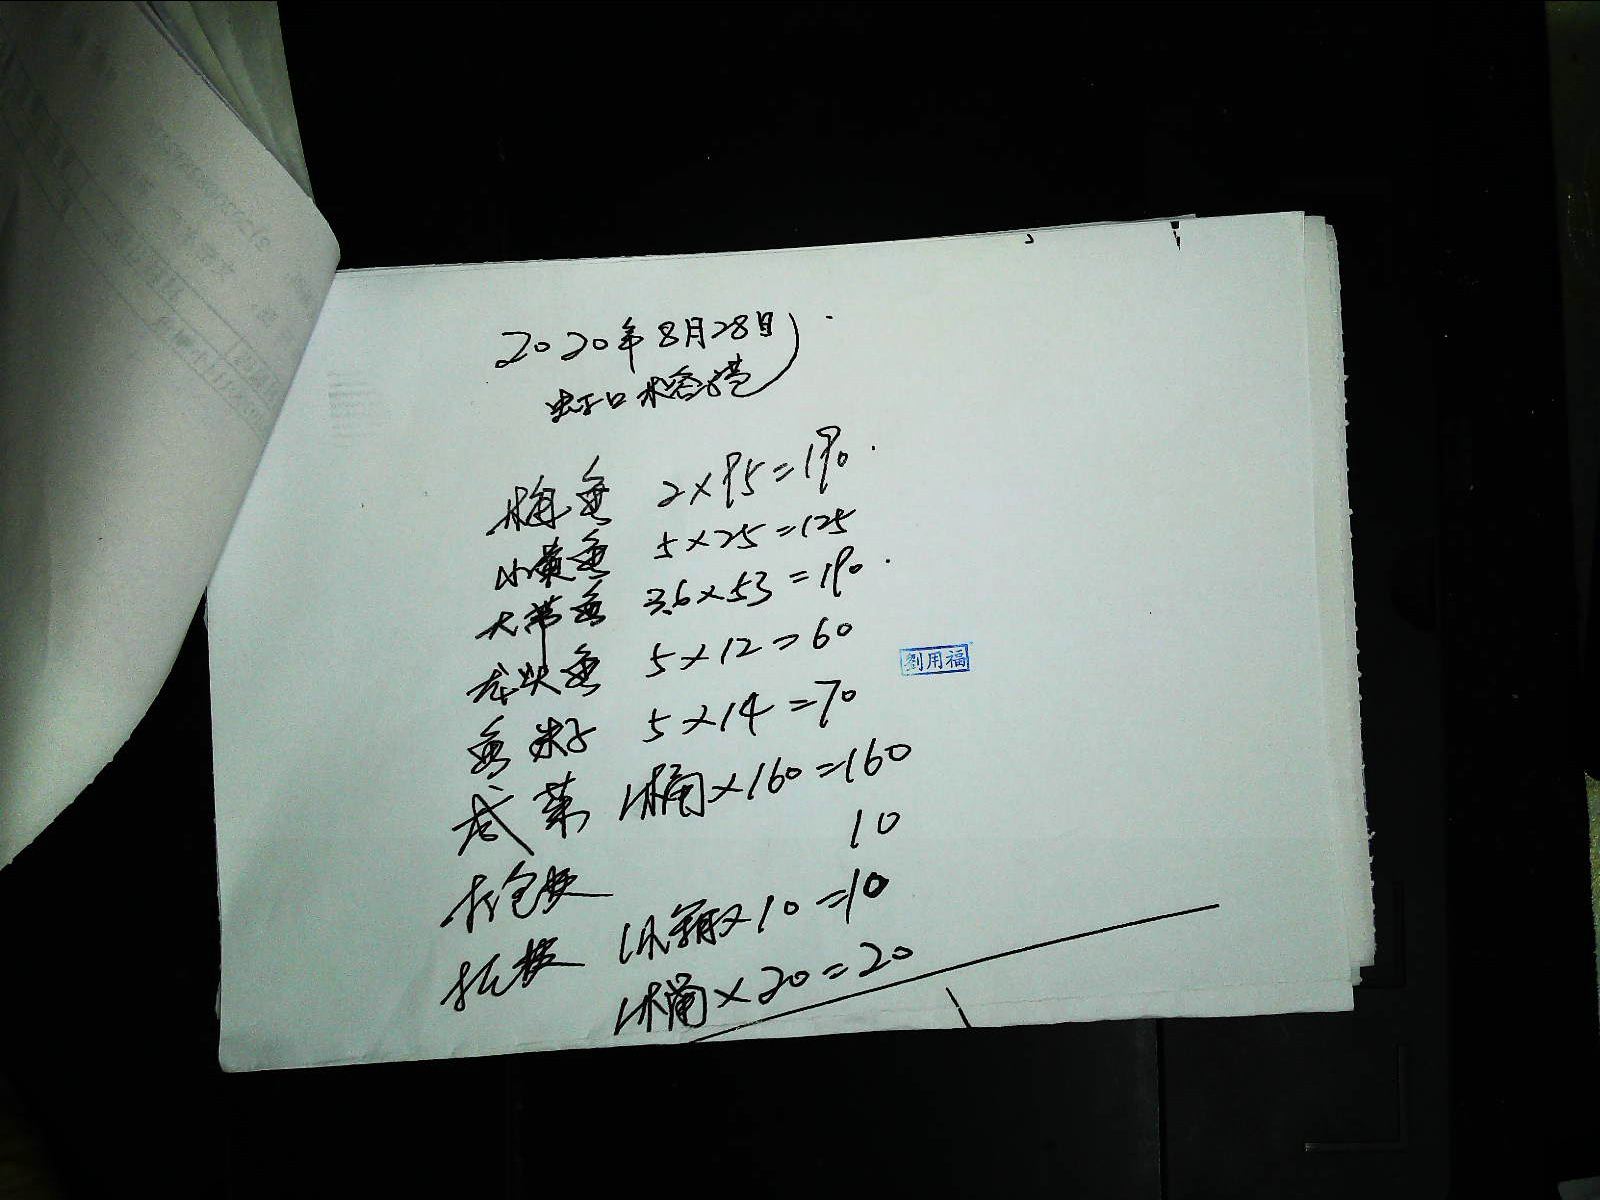 2020年8月28日
虹口
梅鱼 2×95=190
小黄鱼 5×25=125
大带鱼 3.6×53=190
龙头鱼 5×12=60
劉用福
鱼籽 5×14=70
咸菜 1桶×160=160
打包费 10
托费 1小箱×10=10
1桶×20=20